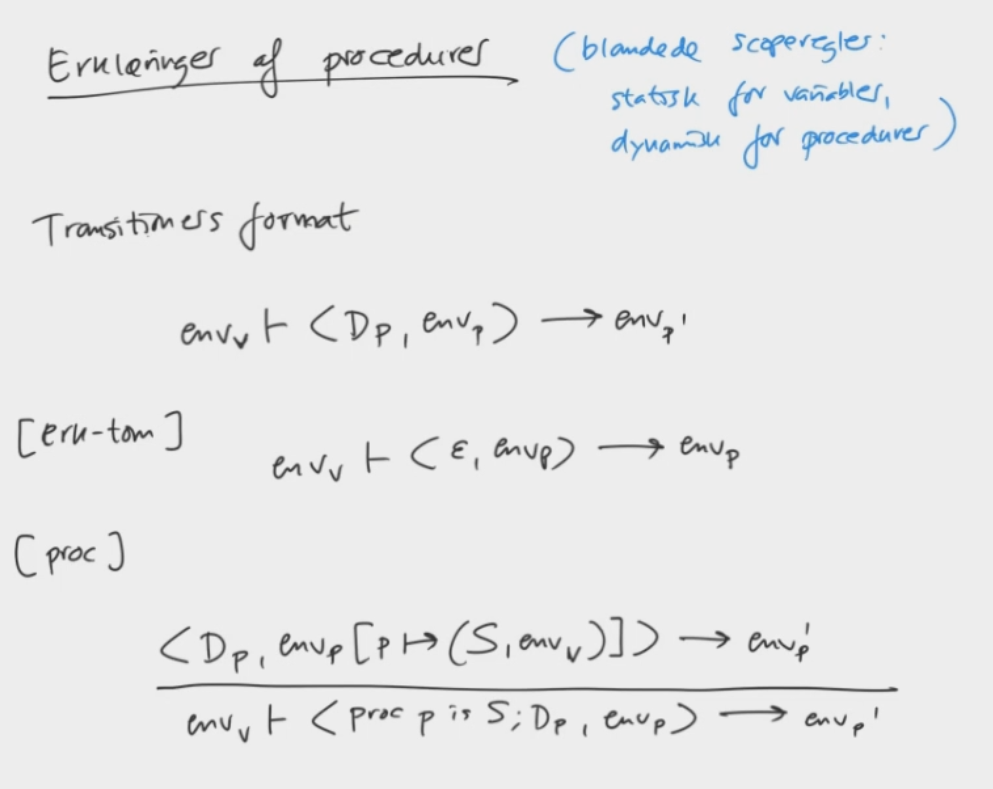 Erklæringer af procedurer
(blandede scoperegler:
statisk for variabler,
dynamisk for procedurer)
Transitioners format
env_v ⊢ <D_P, env_p> → env_p'
[erk-tom]
env_v ⊢ <ε, env_p> → env_p
[proc]
<D_P, env_p[p ↦ (S, env_v)]> → env_p'
env_v ⊢ <proc p is S; D_P, env_p> → env_p'